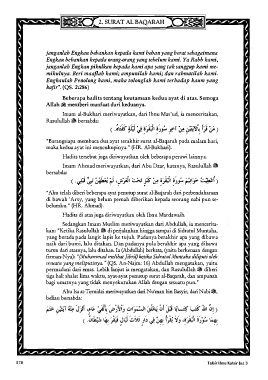 2. SURAT AL BAQARAH
janganlah Engkau bebankan kepada kami beban yang berat sebagaimana
Engkau bebankan kepada orang-orang yang sebelum kami. Ya Rabb kami,
janganlah Engkau pikulkan kepada kami apa yang tak sanggup kami me-
mikulnya. Beri maaflah kami; ampunilah kami; dan rahmatilah kami.
Engkaulah Penolong kami, maka tolonglah kami terhadap kaum yang
kafir". (QS. 2:286)
Beberapa hadits tentang keutamaan kedua ayat di atas. Semoga
Allah memberi manfaat dari keduanya.
Imam al-Bukhari meriwayatkan, dari Ibnu Mas'ud, ia menceritakan,
Rasulullah bersabda:
( مَنْ قَرَأَ بِالْآيَتَيْنِ مِنْ آخِرِ سُورَةِ الْبَقَرَةِ فِي لَيْلَةٍ كَفَتَاهُ. )
"Barangsiapa membaca dua ayat terakhir surat al-Baqarah pada malam hari,
maka kedua ayat ini mencukupinya." (HR. Al-Bukhari).
Hadits tersebut juga diriwayatkan oleh beberapa perawi lainnya.
Imam Ahmad meriwayatkan, dari Abu Dzar, katanya, Rasulullah
bersabda:
( أُعْطِيتُ خَوَاتِيمَ سُورَةِ الْبَقَرَةِ مِنْ كَنْزٍ تَحْتَ الْعَرْشِ، لَمْ يُعْطَهُنَّ نَبِيٌّ قَبْلِي. )
"Aku telah diberi beberapa ayat penutup surat al-Baqarah dari perbendaharaan
di bawah 'Arsy, yang belum pernah diberikan kepada seorang nabi pun se-
belumku." (HR. Ahmad).
Hadits di atas juga diriwayatkan oleh Ibnu Mardawaih.
Sedangkan Imam Muslim meriwayatkan dari Abdullah, ia mencerita-
kan: "Ketika Rasulullah di perjalankan hingga sampai di Sidratul Muntaha,
yang berada pada langit lapis ke tujuh. Padanya berakhir apa yang dibawa
naik dari bumi, lalu ditahan. Dan padanya pula berakhir apa yang dibawa
turun dari atasnya, lalu ditahan. Ia (Abdullah) berkata, (yaitu berkenaan dengan
firman-Nya): "(Muhammad melihat Jibril) ketika Sidratul Muntaha diliputi oleh
sesuatu yang meliputinya." (QS. An-Najm: 16) Abdullah mengatakan, yaitu
permadani dari emas. Lebih lanjut ia mengatakan, dan Rasulullah diberi
tiga hal: shalat lima waktu, ayat-ayat penutup surat al-Baqarah, dan ampunan
bagi umatnya yang tidak menyekutukan Allah dengan sesuatu pun."
Abu Isa at-Tirmidzi meriwayatkan dari Nu'man bin Basyir, dari Nabi,
beliau bersabda:
( إِنَّ اللهَ كَتَبَ كِتَابًا قَبْلَ أَنْ يَخْلُقَ السَّمَوَاتِ وَالْأَرْضَ بِأَلْفَيْ عَامٍ، أَنْزَلَ مِنْهُ آيَتَيْنِ خَتَمَ
بِهِمَا سُورَةَ الْبَقَرَةِ، وَلَا يُقْرَأُ بِهِنَّ فِي دَارٍ ثَلَاثَ لَيَالٍ فَيَقْرَبُهَا شَيْطَانٌ. )
578
Tafsir Ibnu Katsir Juz 3